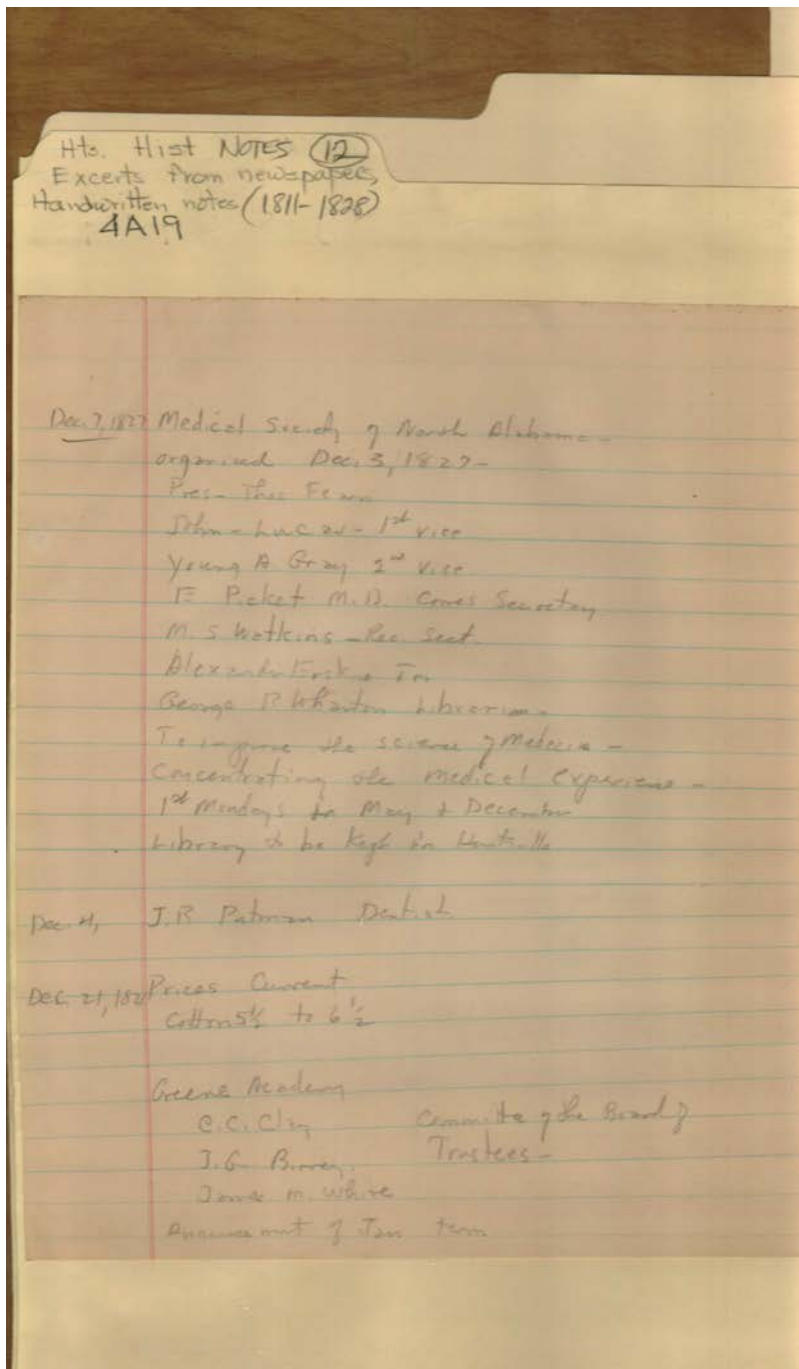 Hts. Hist NOTES (12)
Excerts from newspapers,
Handwritten notes (1811-1828)
4A19
Dec. 7, 1827 Medical Society of North Alabama -
organized Dec. 3, 1827 -
Pres - Thos Fearn
John - Lucas - 1st vice
Young A Gray 2nd vice
E Picket M.D. Corres Secretary
M. S Watkins - Rec. Sect.
Alexander
George R Wharton Librarian -
To improve the science of Medecin -
Concentrating the medical experience -
1st Mondays in May & December
Library to be kept in Huntsville
Dec. J.R Putman Dentist
Dec. 21, Prices Current
Cotton 5½ to 6½
Greene Academy
C.C. Clay Committe of the Board of
J.G. Birney. Trustees -
James M. White
Announcement of Jan term